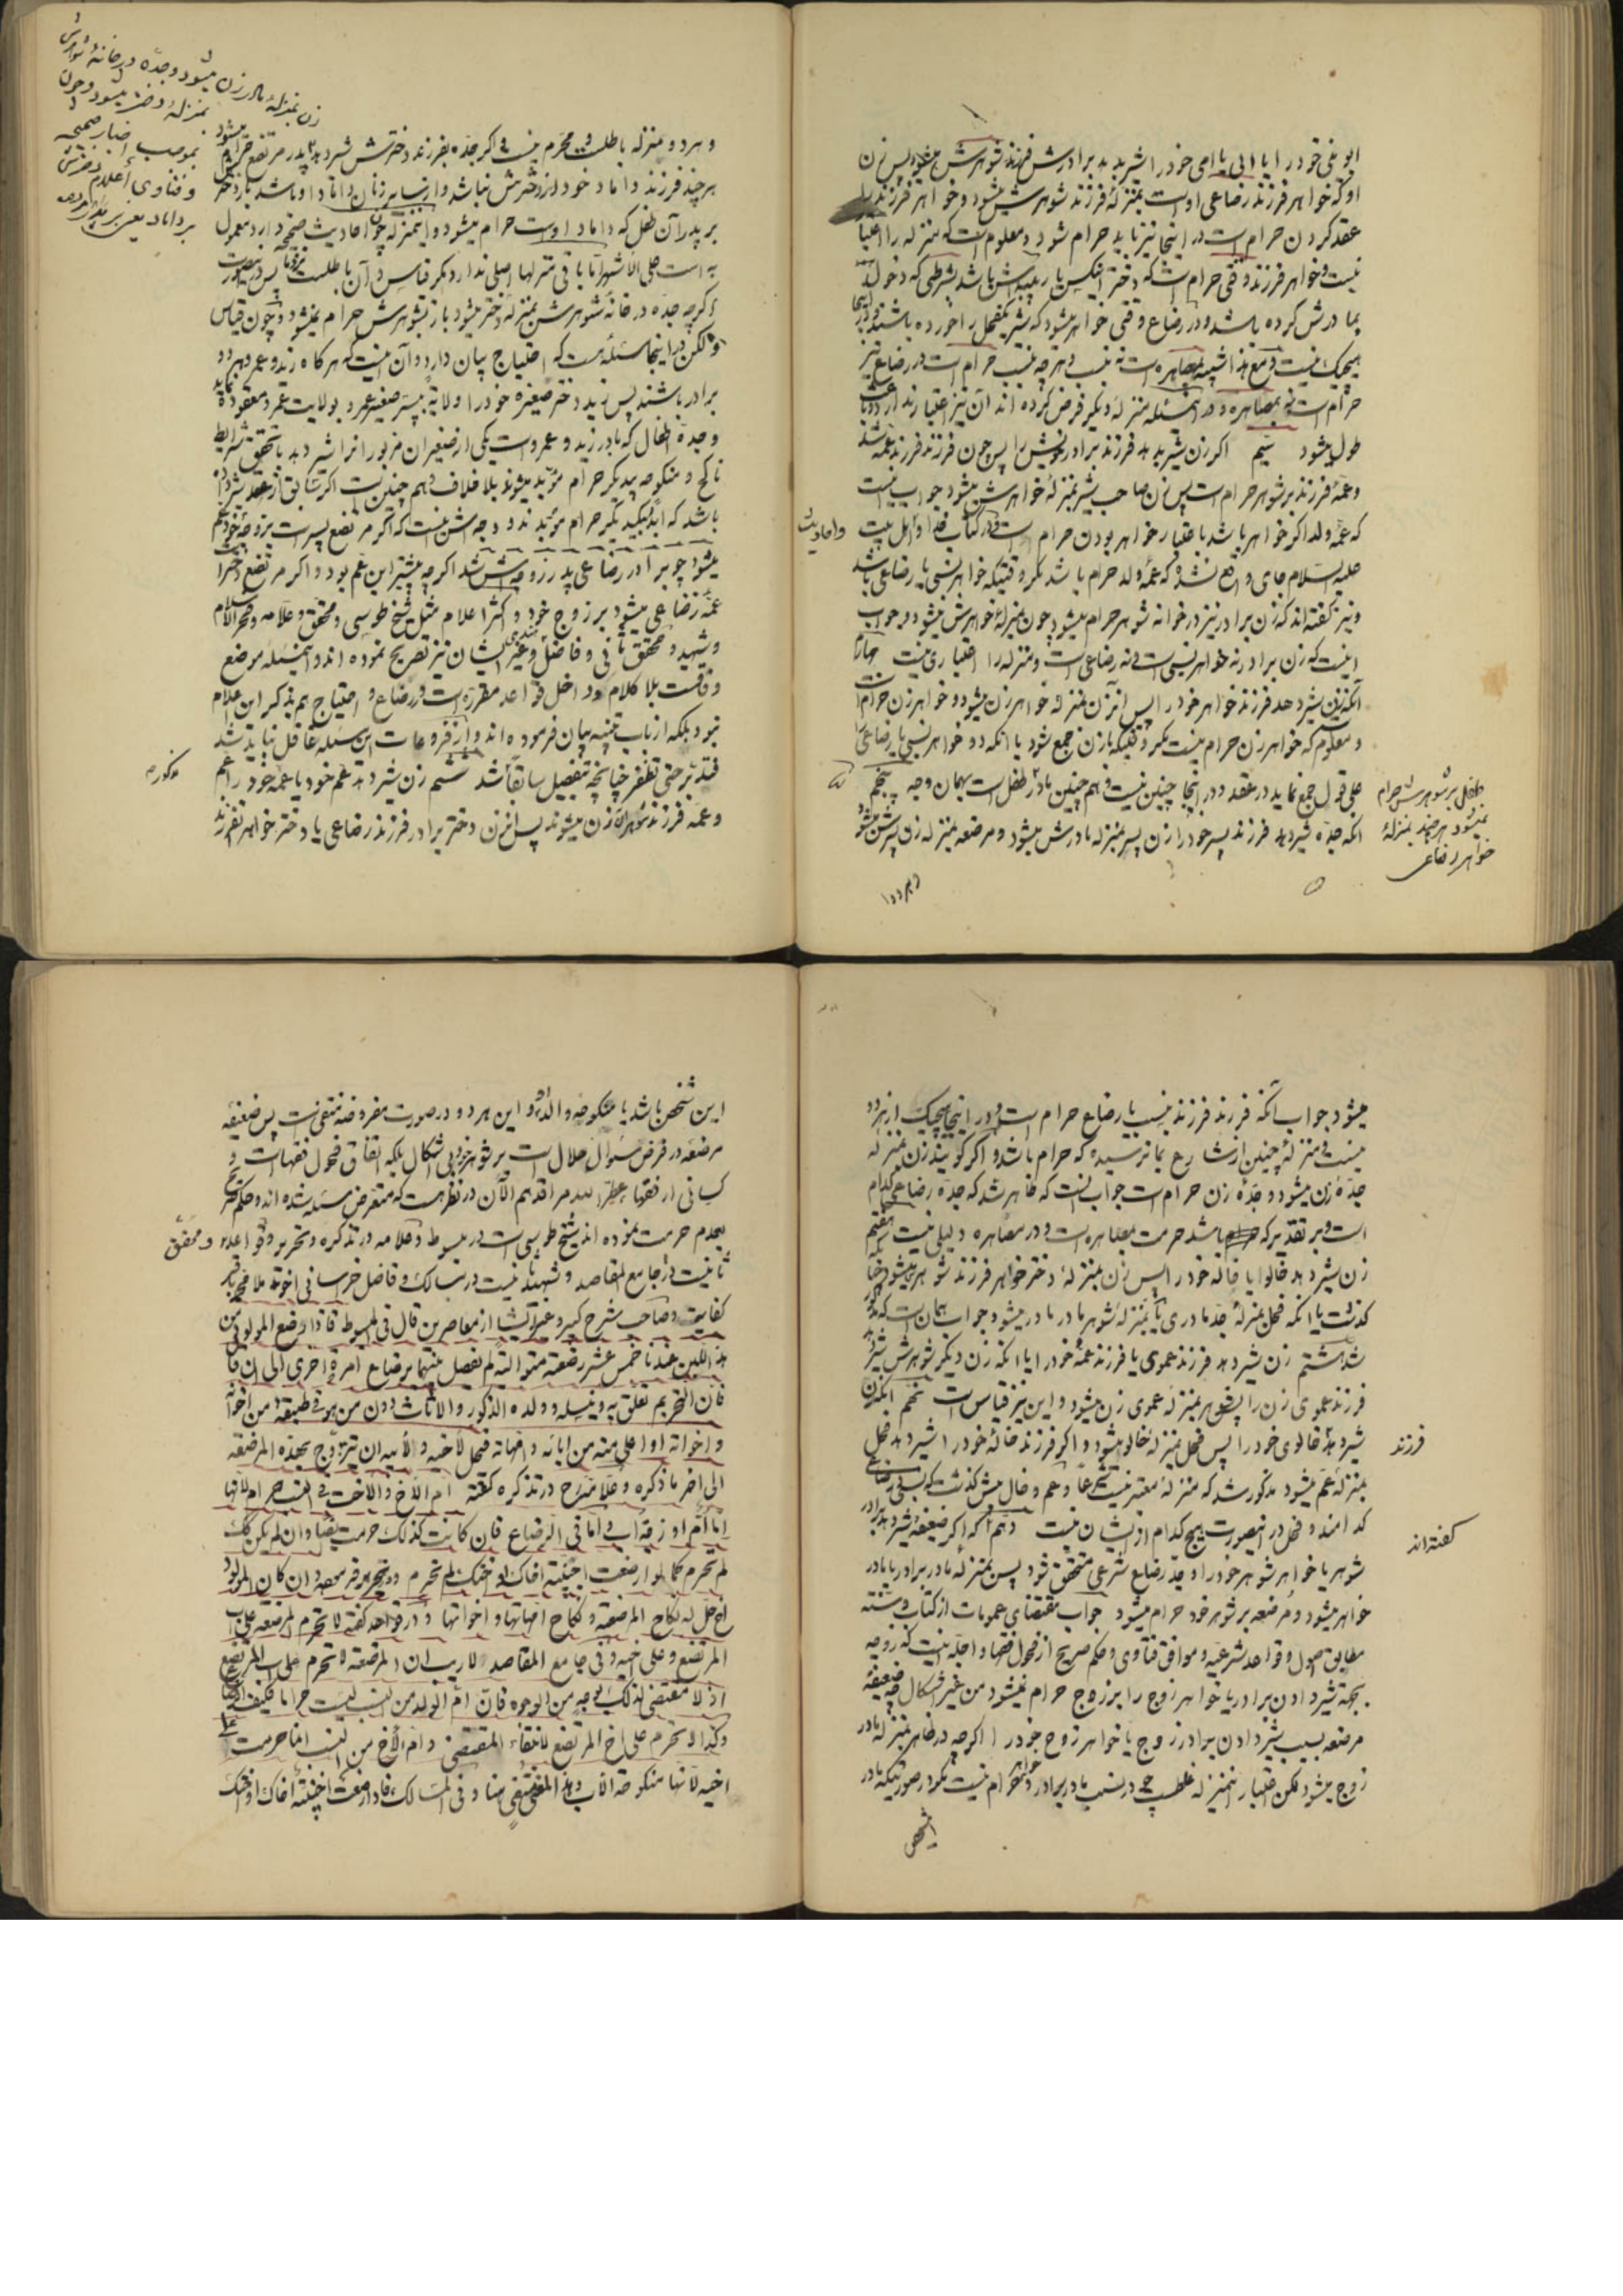 ابوینی خود را یا ابی یا امی خود را شیر بدهد برادرش فرزند شوهرش میشود پس زن
او که خواهر فرزند رضاعی اوست بمنزلهٔ فرزند شوهرش میشود و خواهر فرزند را
عقد کردن حرام است در اینجا نیز باید حرام شود و معلوم است که منزله را اعتبار
نیست و خواهر فرزند وقتی حرام است که دختر اینکس یا ربیبه اش باشد بشرطی که دخول
بمادرش کرده باشد و در رضاع وقتی خواهر میشود که شیر یکفحل را خورده باشند و در اینجا
هیچیک نیست و مع هذا شبیه بمصاهره است نه بنسب و هرچه بنسب حرام است در رضاع نیز
حرام است نه بمصاهره و در اینمسئله منزلهٔ دیگر فرض کرده اند آن نیز اعتبار ندارد
طول میشود سیم اگر زن شیر بدهد فرزند برادر خویش را پس چون فرزند فرزند عمه شد
و عمهٔ فرزند بر شوهر حرام است پس زن صاحب شیر بمنزلهٔ خواهرش میشود جواب اینست
که عمهٔ ولد اگر خواهر باشد باعتبار خواهر بودن حرام است و در کتاب خدا و اهل بیت
و احادیث
علیه السلام جای واقع نشده که عمهٔ ولد حرام باشد مگر وقتیکه خواهر نسبی یا رضاعی باشد
و نیز گفته اند که زن برادر نیز در خانه شوهر حرام میشود چون بمنزلهٔ خواهرش میشود و جواب
اینست که زن برادر نه خواهر نسبی است و نه رضاعی است و منزله را اعتباری نیست چهارم
آنکه زن شیر دهد فرزند خواهر خود را پس آنزن بمنزلهٔ خواهر زن میشود و خواهر زن حرام است
و معلوم که خواهر زن حرام نیست مگر وقتیکه با زن جمع شود یا آنکه دو خواهر نسبی یا رضاعی را
علی قول جمع نماید در عقد و در اینجا چنین نیست و هم چنین مادر طفل است بهمان وجه پنجم
انکه جدّه شیر دهد فرزند پسر خود را زن پسر بمنزلهٔ مادرش میشود و مرضعه بمنزلهٔ زن پسرش میشود
طفل بر شوهرش حرام
نمیشود هرچند بمنزلهٔ
خواهر رضاعی
و هر دو
و هر دو منزله باطلست و محرّم نیست و اگر جدّه بفرزند دخترش شیر دهد پدر مرتضع حرام میشود
هرچند فرزند داماد خود از دخترش نباشد و از سایر زنان داماد او باشد باز دختر
بر پدر آن طفل که داماد اوست حرام میشود و اینمنزله چون احادیث صحیحه دارد معمول
به است علی الاشهر اما باقی منزلها اصلی ندارد مگر قیاس و آن باطلست پس در اینصورت
اگرچه جدّه در خانهٔ شوهرش بمنزلهٔ دختر میشود باز بشوهرش حرام نمیشود و چون قیاس
ولکن در اینجا مسئله هست که احتیاج ببیان دارد و آن اینست که هر کاه زید و عمرو هر دو
برادر باشند پس زید دختر صغیرهٔ خود را ولایة بپسر صغیر عمرو بولایت عمرو معقوده نماید
و جدهٔ اطفال که مادر زید و عمرو است یکی از صغیران مزبور انرا شیر دهد با تحقق شرایط
ناکح و منکوحه بیکدیگر حرام مؤبد میشوند بلا خلاف و هم چنین است اگر سابق از عقد شیر داده
باشد که ابداً بیکدیگر حرام مؤبدند و وجهش اینست که اگر مرتضع پسر است بزوجهٔ خود عم
میشود چو برادر رضاعی پدر زوجه اش شد اگرچه پیشتر ابن عم بود و اگر مرتضع دختر است
عمهٔ رضاعی میشود بر زوج خود و اکثر اعلام مثل شیخ طوسی و محقق و علامه و فخر الاسلام
و شهید و محقق ثانی و فاضل هندی و غیر ایشان نیز تصریح نموده اند و اینمسئله موضع
وفاقست بلا کلام و داخل قواعد مقرره است در رضاع و احتیاج هم بذکر این اعلام
نبود بلکه از باب تنبیه بیان فرموده اند و از فروعات این مسئله غافل نباید شد
فتدبر حتی تظفر چنانچه بتفصیل سابقا شد ششم زن شیر دهد عم خود یا عمهٔ خود را عم
و عمه فرزند شوهران زن میشوند پس انزن دختر برادر فرزند رضاعی یا دختر خواهر فرزند
مذکوره
زن بمنزلهٔ مادر زن میشود و جدّه در خانهٔ شوهرش
بمنزلهٔ دختر میشود و چون
بموجب اخبار صحیحه
و فتاوی اعلام دخترش
بر داماد یعنی بر پدر مرتضع
میشود جواب آنکه فرزند فرزند بنسب یا رضاع حرام است و در اینجا هیچیک از هر دو
نیست و منزلهٔ چنین از شارع بما نرسیده که حرام باشد و اگر گویند زن بمنزلهٔ
جدّهٔ زن میشود و جدّهٔ زن حرام است جواب انست که ظاهر شد که جدّه رضاعی کدام
است و بر تقدیر که باشد حرمت بمصاهره است و در مصاهره دلیلی نیست هفتم
زن شیر دهد خالو یا خاله خود را پس زن بمنزلهٔ دختر خواهر فرزند شوهر میشود چنانکه
گذشت یا انکه فحل بمنزلهٔ جد مادری یا بمنزلهٔ شوهر مادر مادر میشود جواب همان است که مذکور
شد هشتم زن شیر دهد فرزند عموی یا فرزند عمهٔ خود را یا انکه زن دیگر شوهرش شیر دهد
فرزند عموی زن را پس شوهر بمنزلهٔ عموی زن میشود و این نیز قیاس است نهم انکه زن
شیر دهد خالوی خود را پس فحل بمنزلهٔ خالو میشود و اگر فرزند خالهٔ خود را شیر دهد فحل
فرزند
بمنزلهٔ عم میشود مذکور شد که منزله معتبر نیست شرعا و عم و خال پیش گذشت که نسبی و رضاعی
کدامند و فحل در اینصورت هیچ کدام از ایشان نیست دهم آنکه اگر ضعیفه شیر دهد برادر
گفته اند
شوهر یا خواهر شوهر خود را و حدّ رضاع شرعی متحقق شود پس بمنزلهٔ مادر برادر یا مادر
خواهر میشود و مرضعه بر شوهر خود حرام میشود جواب بمقتضای عمومات از کتاب و سنته
مطابق اصول و قواعد شرعیه و موافق فتاوی و حکم صریح از فحول فقها و اجلّه اینست که زوجه
بجهة شیر دادن برادر یا خواهر زوج را بر زوج حرام نمیشود من غیر اشکال چه ضعیفهٔ
مرضعه بسبب شیر دادن برادر زوج یا خواهر زوج خود را اگرچه در ظاهر بمنزلهٔ مادر
زوج میشود لکن اعتبار اینمنزله غلطست چه در نسب مادر برادر و خواهر حرام نیست مگر در صورتیکه مادر
اینشخص
این شخص باشد یا منکوحه والد او و این هر دو در صورت مفروضه منتفی است پس ضعیفه
مرضعه در فرض سؤال حلال است بر شوهر خود بی اشکال بلکه اتفاق فحول فقهاست و
کسانی از فقها عطر الله مراقدهم الآن در نظر هست که متعرض مسئله شده اند و حکم صریح
بعدم حرمت نموده اند شیخ طوسی است در مبسوط و علامه در تذکره و تحریر و قواعد و محقق
ثانیست در جامع المقاصد و شهید ثانیست در مسالک و فاضل خراسانی اخوند ملا محمد باقر
کفایت و صاحب شرح کبیر و غیر ایشان از معاصرین قال فی المبسوط فاذا ارضع المولود من
هذا اللبن عندنا خمس عشر رضعة متوالیة لم تفصل بینهما برضاع امرئة اخری الی ان قال
فان التحریم تعلق به و بنسله و ولده الذکور و الاناث دون من هو فی طبقته من اخوته
و اخواته او اعلی منه من ابائه و امهاته فیحل لاخیه و لابیه ان یتزوج بهذه المرضعة
الی اخر ما ذکره و علامه ره در تذکره گفته ام الاخ و الاخت فی النسب حرام لانها
اما ام او زوجة اب و اما فی الرضاع فان کانت کذلک حرمت ایضا و ان لم یکن کذلک
لم تحرم کما لو ارضعت اجنبیة اخاک او اختک لم تحرم و در تحریر فرموده و ان کان للمولود
اخ حلّ له نکاح المرضعة و نکاح امهاتها و اخواتها و در قواعد گفته لا تحرم المرضعة علی اب
المرتضع و علی اخیه و فی جامع المقاصد لا ریب ان المرضعة لا تحرم علی اب المرتضع
اذ لا مقتضی لذلک بوجه من الوجوه فان ام الولد من النسب لیست حراما فکیف الرضاع
و کذا لا تحرم علی اخ المرتضع لانتفاء المقتضی و ام الأخ من النسب انما حرمت علی
اخیه لانها منکوحة الاب و هذا المعنی منتفی هنا و فی المسالک فاذا ارضعت اجنبیة اخاک او اختک